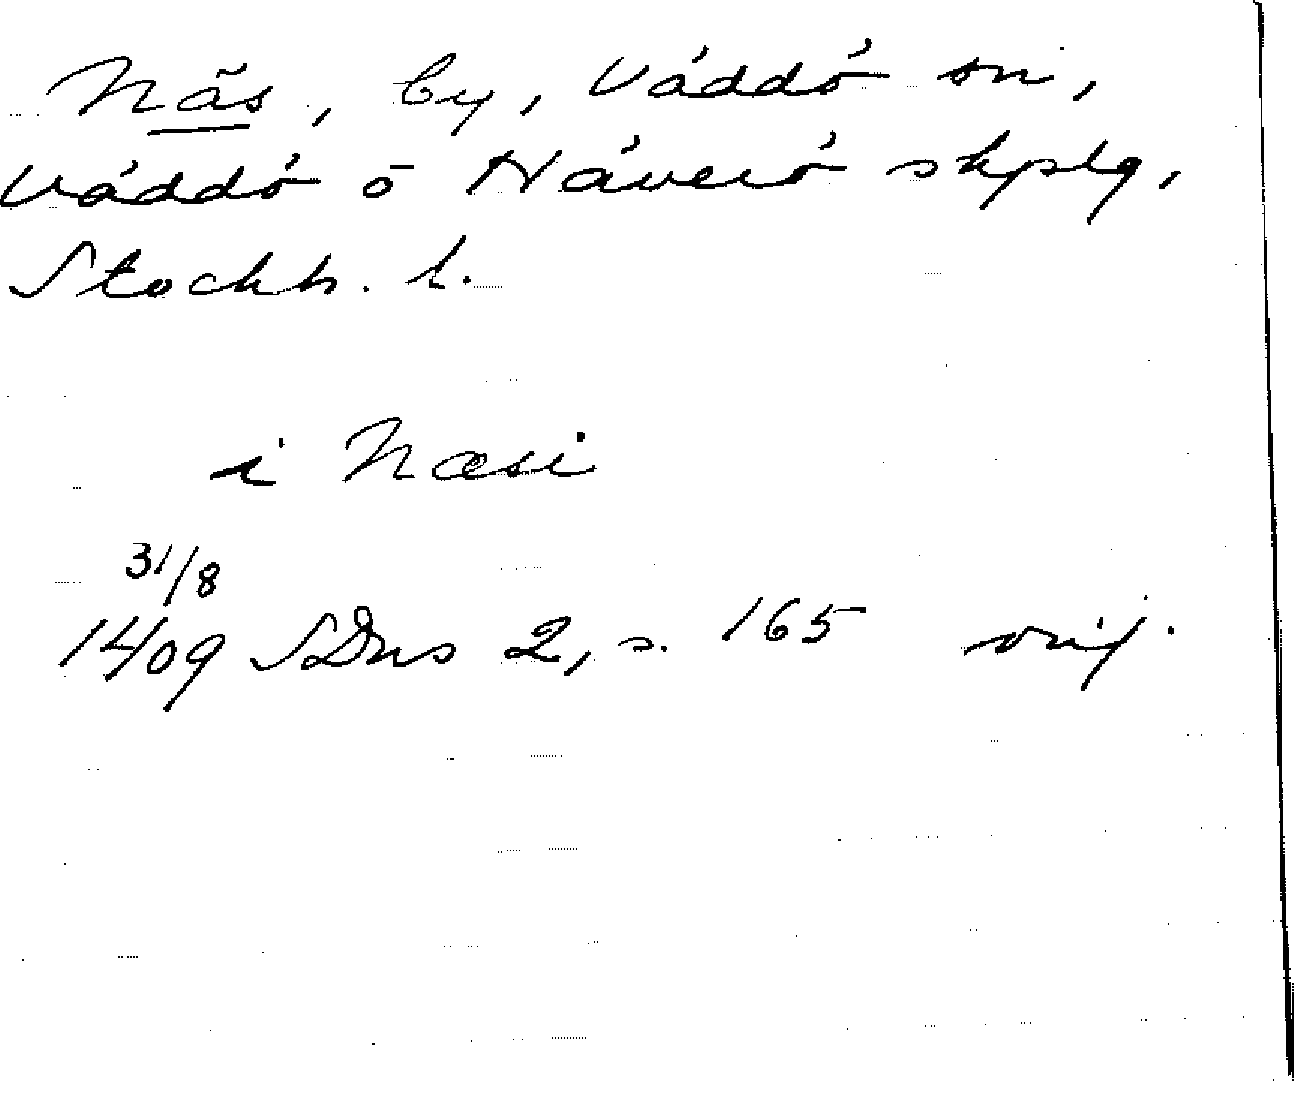 Näs, by, Väddö sn,
Väddö o Häverö skplg,
Stockh. l.
i Næsi
31/8
1409 SDns 2, s. 165 orig.